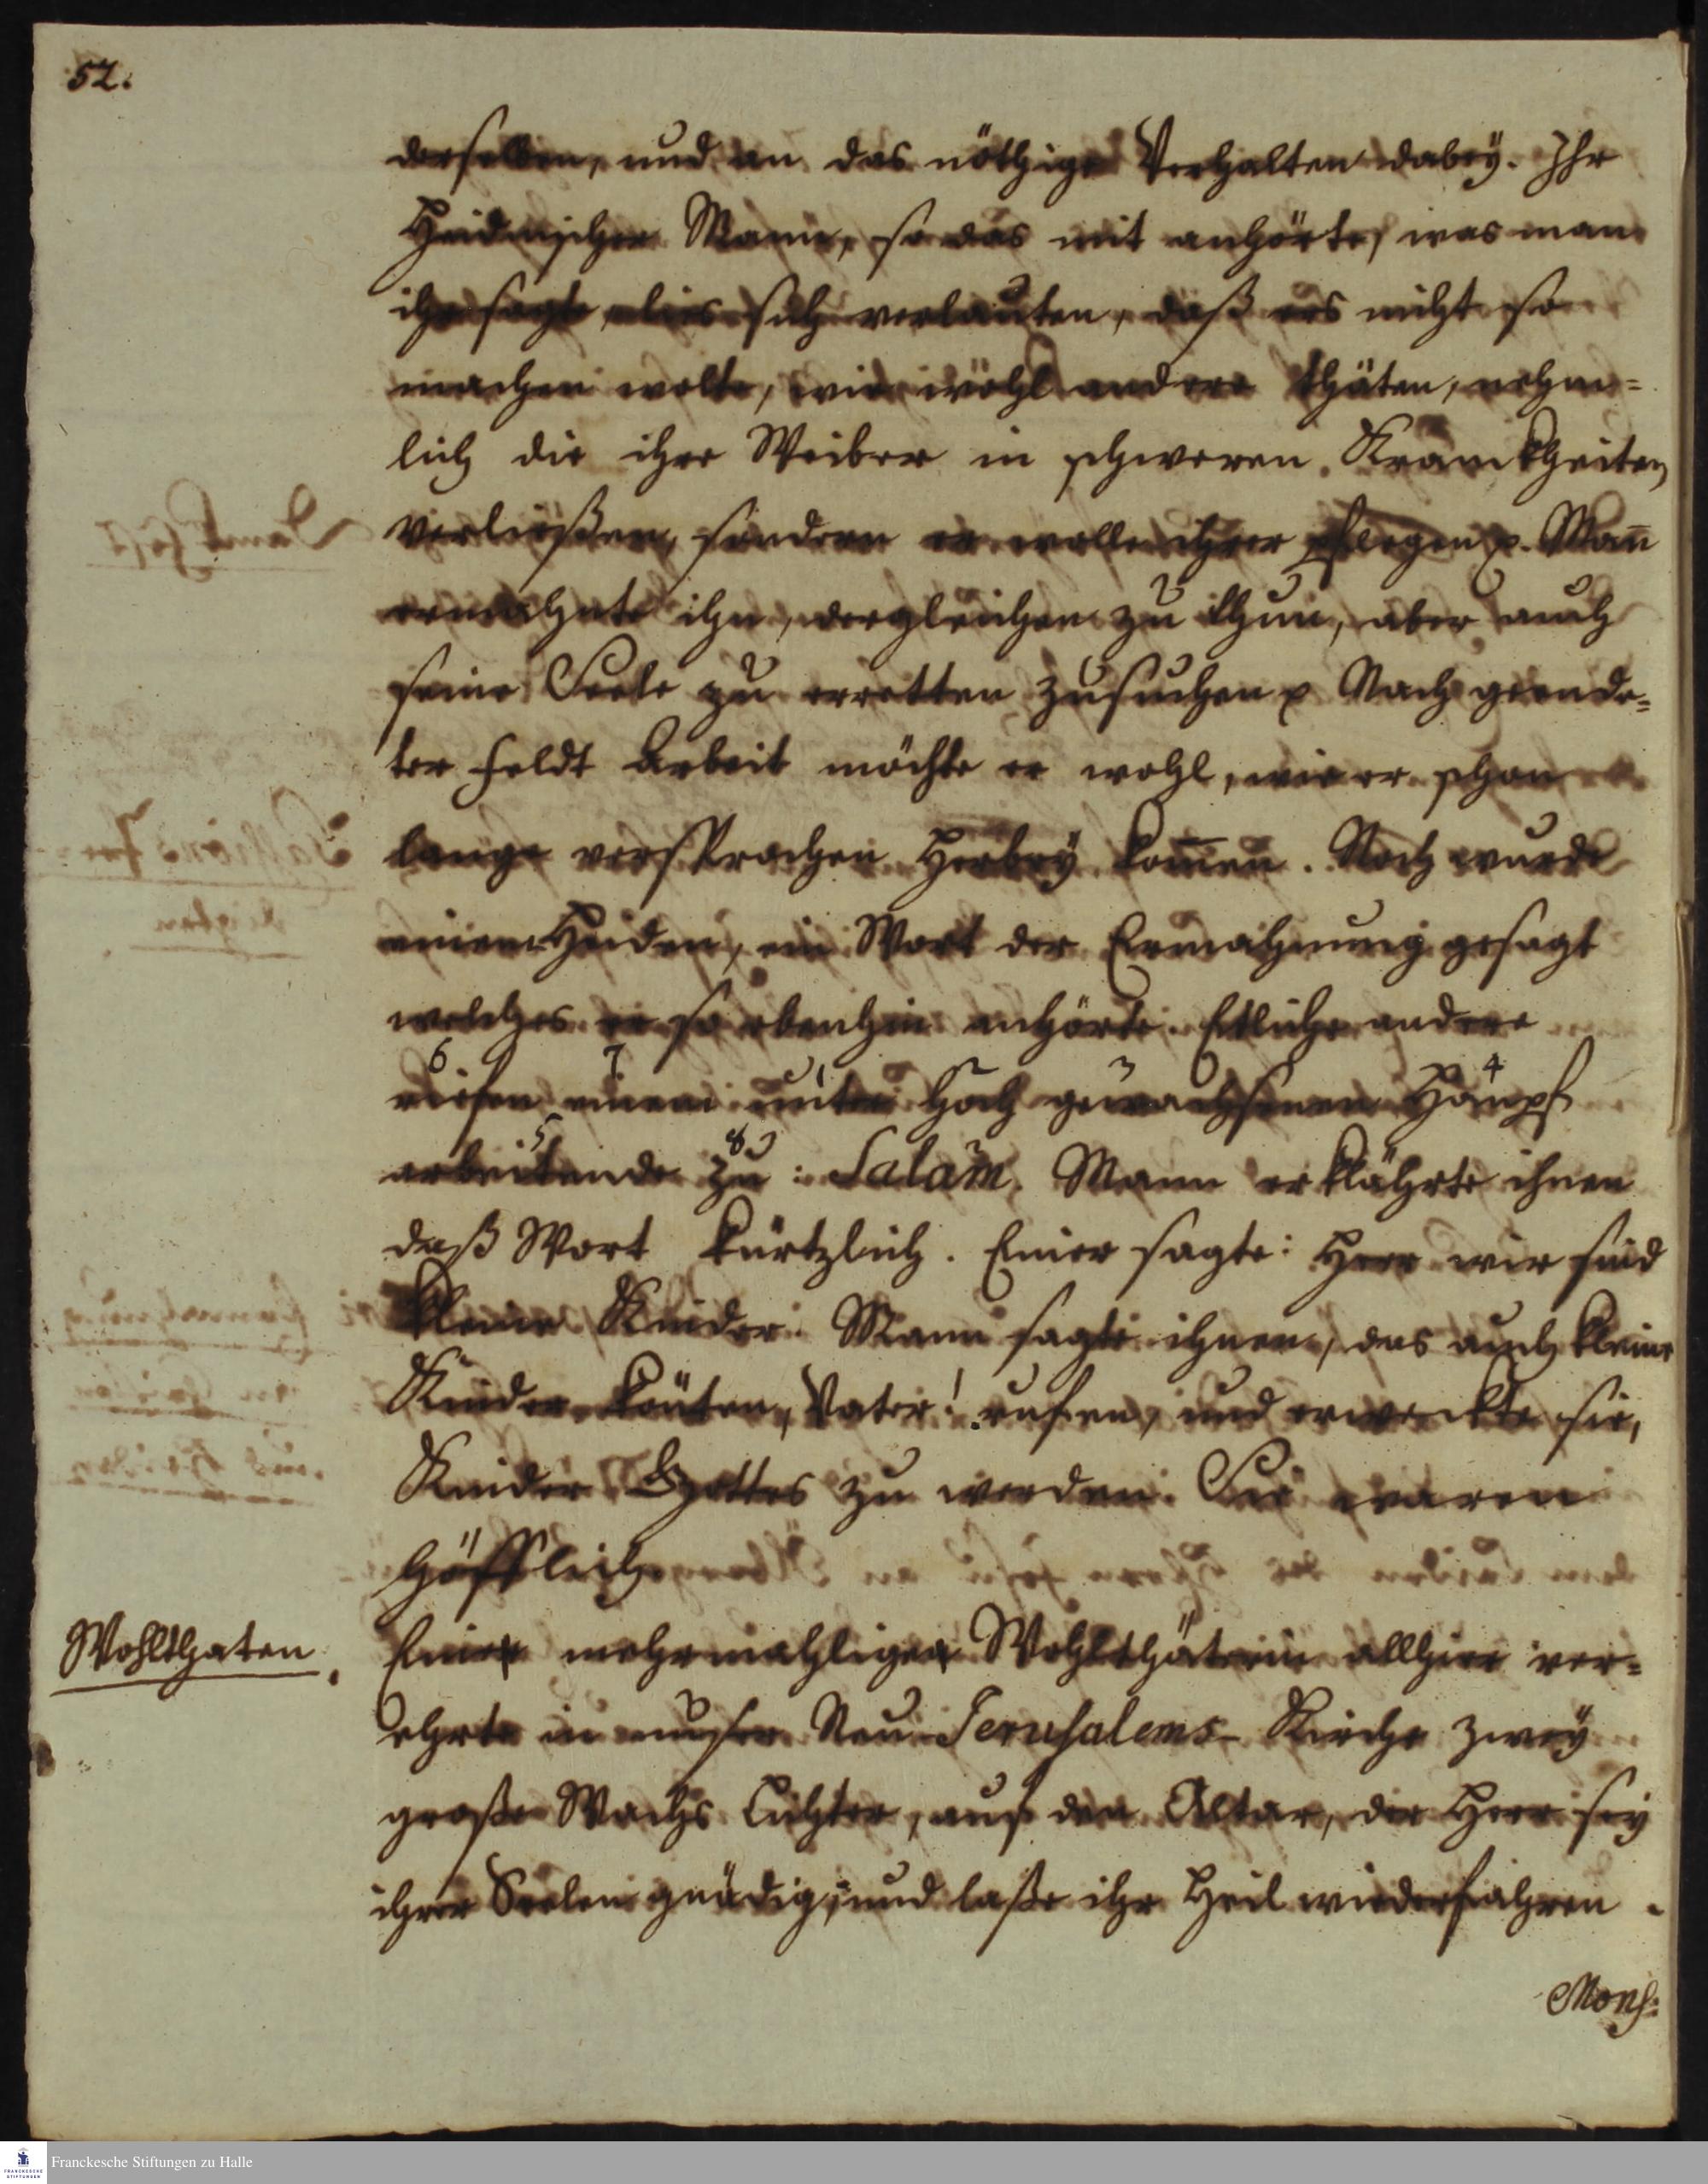 52.
derselben, und an das nöthige Verhalten dabey. Ihr
Heidnischer Mann, so das mit anhörte, was man
ihr sagte, lies sich verlauten, daß ers nicht so
machen wolte, wie wohl andere thäten, nehm=
lich die ihre Weiber in schweren Kranckheiten
verließen, sondern er wolle ihrer pflegen p. Man̄
ermahnte ihn, dergleichen zu thun, aber auch
seine Seele zu erretten zusuchen p Nach geende=
ter Feldt Arbeit möchte er wohl, wie er schon
lange versprochen Herbey kom̄en. Noch wurde
einem Heiden, ein Wort der Ermahnung gesagt
welches er so obenhin anhörte. Etliche andere
6 7 1 2 3 4
riefen einem unter hoch gewachsenen Hänpf
5 8
arbeitende zu: Salam. Mann erklährte ihnen
daß Wort kürtzlich. Einer sagte: Herr wir sind
kleine Kinder. Mann sagte ihnen, das auch kleine
Kinder könten, Vater! rufen, und erweckte sie,
Kinder Gottes zu werden. Sie waren
höfflich.
Wohlthaten.
Eine mehrmahlige Wohlthäterin allhier ver=
ehrte in unser Neu-Jerusalems-Kirche zwey
große Wachs Lichter, auf den Altar, der Herr sey
ihrer Seelen gnädig, und laße ihr Heil wiederfahren.
Mons:
Franckesche Stiftungen zu Halle